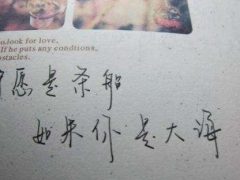 n.look for love,
if he puts any condtions,
bstacles.
愿是条船
如果你是大海